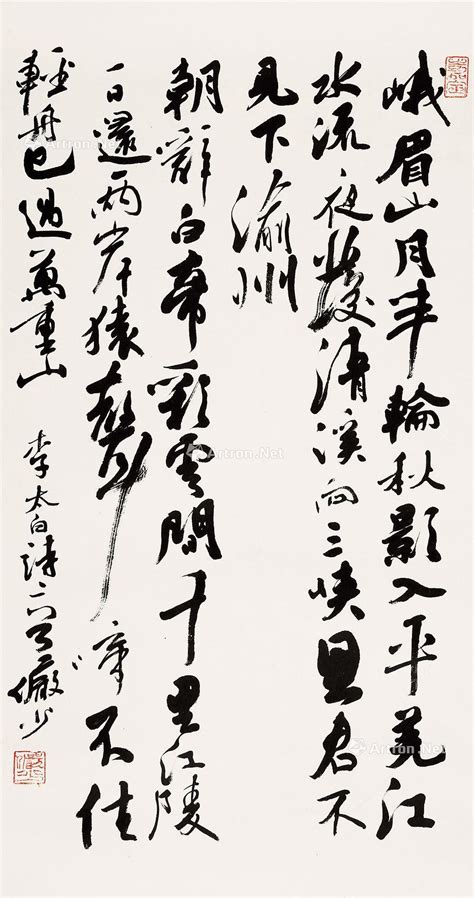 峨眉山月半輪秋影入平羌江
水流夜發清溪向三峽思君不
見下渝州
朝辭白帝彩雲間千里江陵
一日還兩岸猿聲啼不住
輕舟已過萬重山
李太白詩二首 儼少
Artron.Net
Artron.Net
Artron.Net